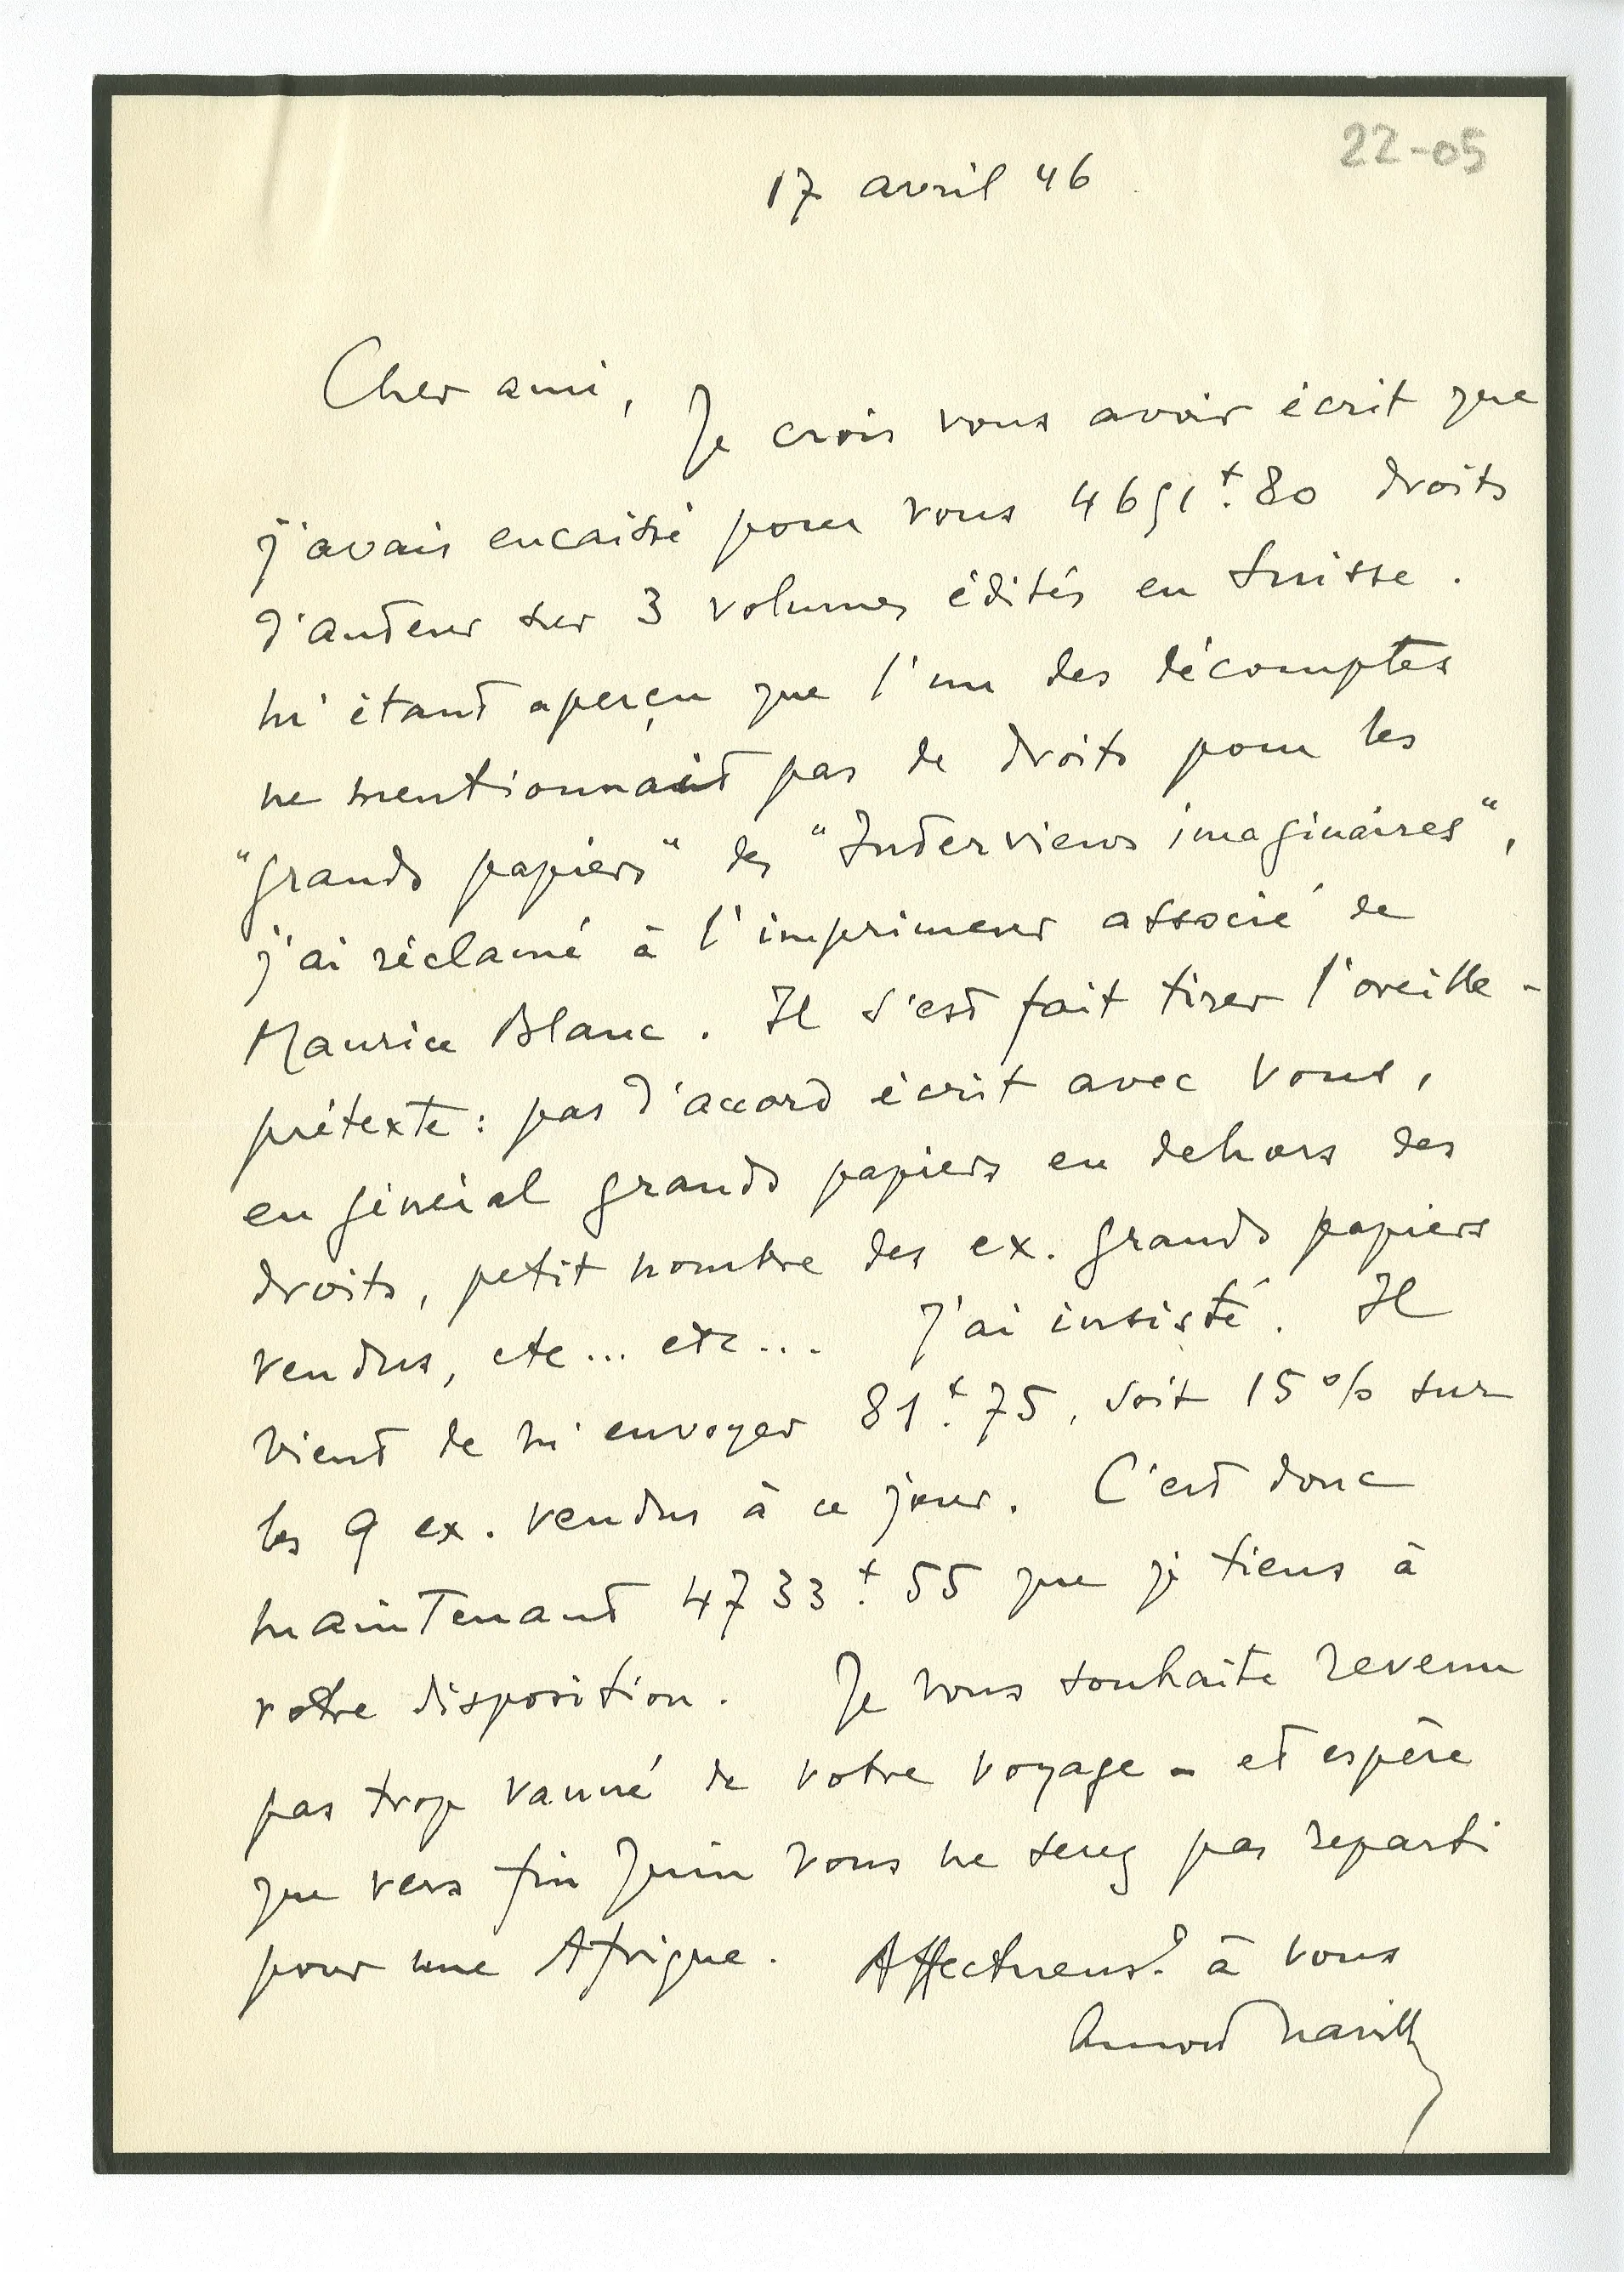 22-05
17 avril 46
Cher ami,
Je crois vous avoir écrit que
j'avais encaissé pour vous 4651 f. 80 droits
d'auteur sur 3 volumes édités en Suisse.
M'étant aperçu que l'un des décomptes
ne mentionnait pas de droits pour les
"grands papiers" des "Interviews imaginaires",
j'ai réclamé à l'imprimeur associé de
Maurice Blanc. Il s'est fait tirer l'oreille -
prétexte : pas d'accord écrit avec vous,
en général grands papiers en dehors des
droits, petit nombre des ex. grands papiers
vendus, etc... etc... J'ai insisté. Il
vient de m'envoyer 81 f. 75, soit 15 % sur
les 9 ex. vendus à ce jour. C'est donc
maintenant 4733 f. 55 que je tiens à
votre disposition. Je vous souhaite revenu
pas trop vanné de votre voyage - et espère
que vers fin Juin vous ne serez pas reparti
pour une Afrique. Affectueust. à vous
Arnold Naville